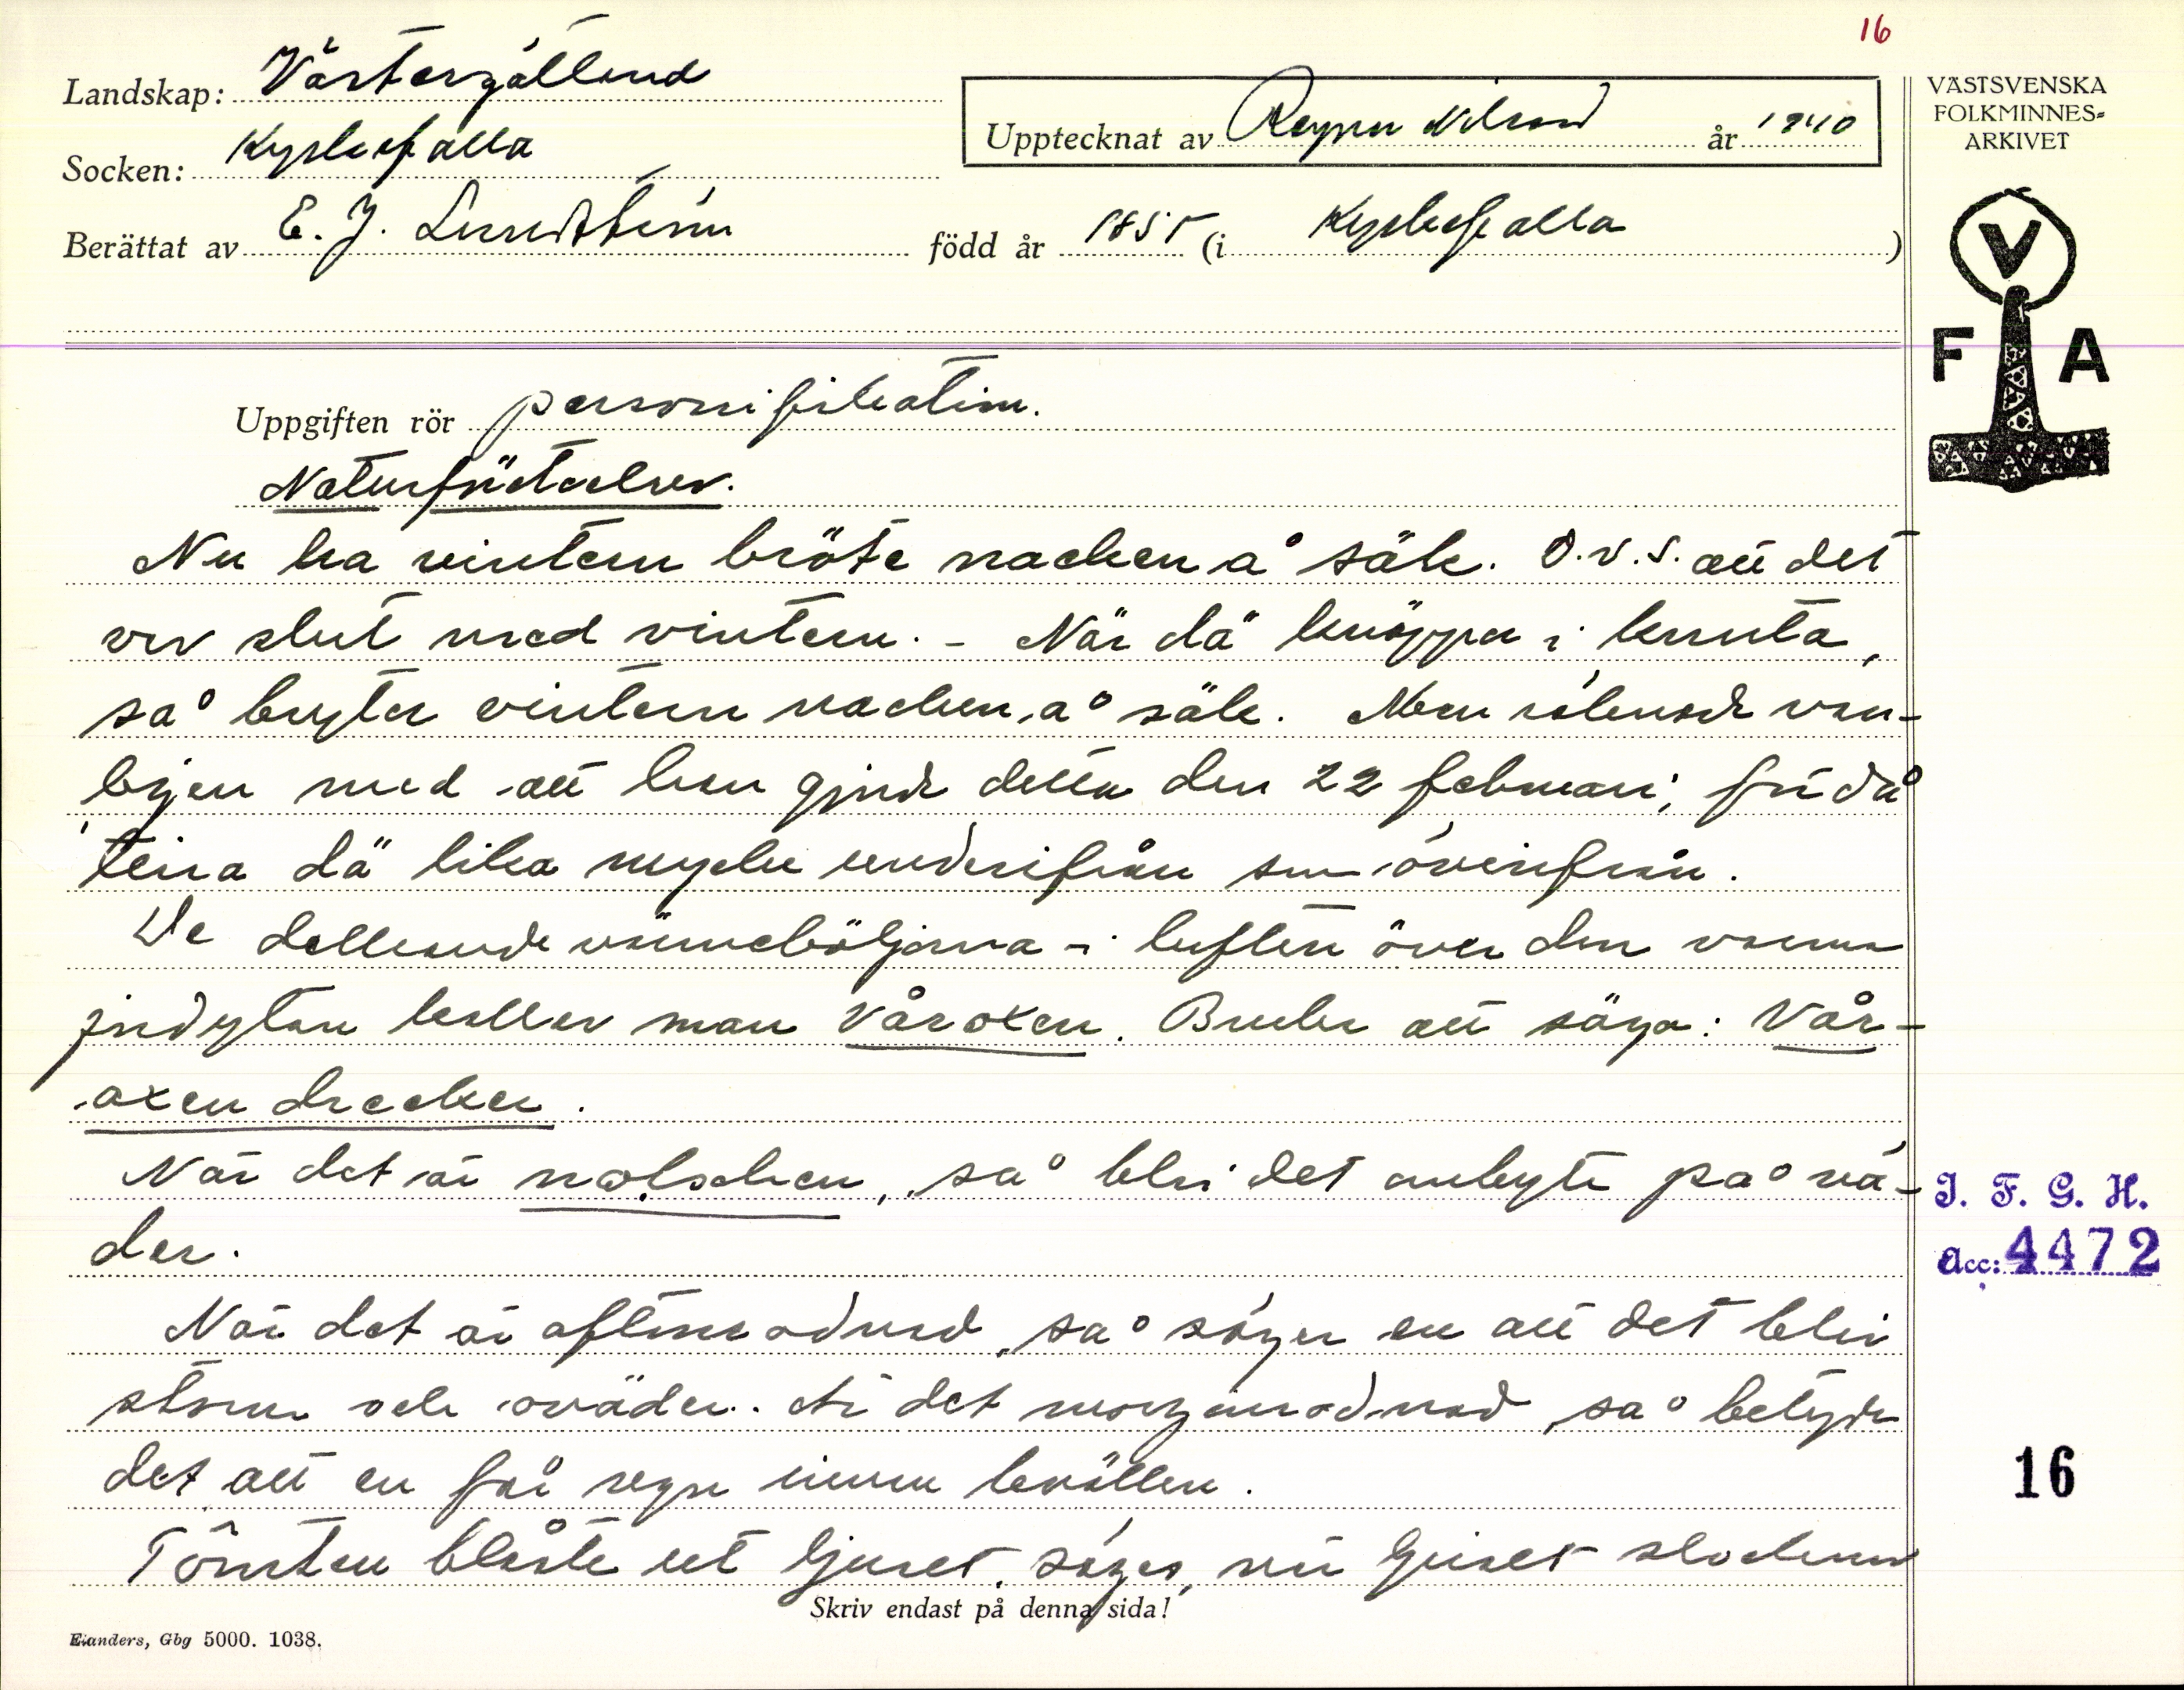 16
Landskap: Västergötland
Socken: Kyrkefalla
Upptecknat av Ragnar Nilsson år 1940
Berättat av E. J. Lundström född år 1855 (i Kyrkefalla)
VÄSTSVENSKA
FOLKMINNES-
ARKIVET
V
F A
Uppgiften rör personifikation.
Naturföreteelser.
Nu ha vintern bröte nacken å säk. D.v.s. att det
var slut med vintern. - När dä knäppa i knuta,
så bryter vintern nacken å säk. Men räknade van-
ligen med att han gjorde detta den 22 februari; för då
teina dä lika mycke underifrån som överifrån.
De dallrande värmeböljorna i luften över den varma
jordytan kallar man våroxen. Bruka att säga: Vår-
oxen dricker.
När det är nolsken, så blir det ombyte på vä-
der.
När det är aftonrodnad, så säger en att det blir
storm och oväder. Är det morgonrodnad, så betyder
det att en får regn innan kvällen.
Tomten blåste ut ljuset, säges, när ljuset slocknar
Skriv endast på denna sida!
Elanders, Gbg 5000. 1038.
I. F. G. H.
Acc: 4472
16